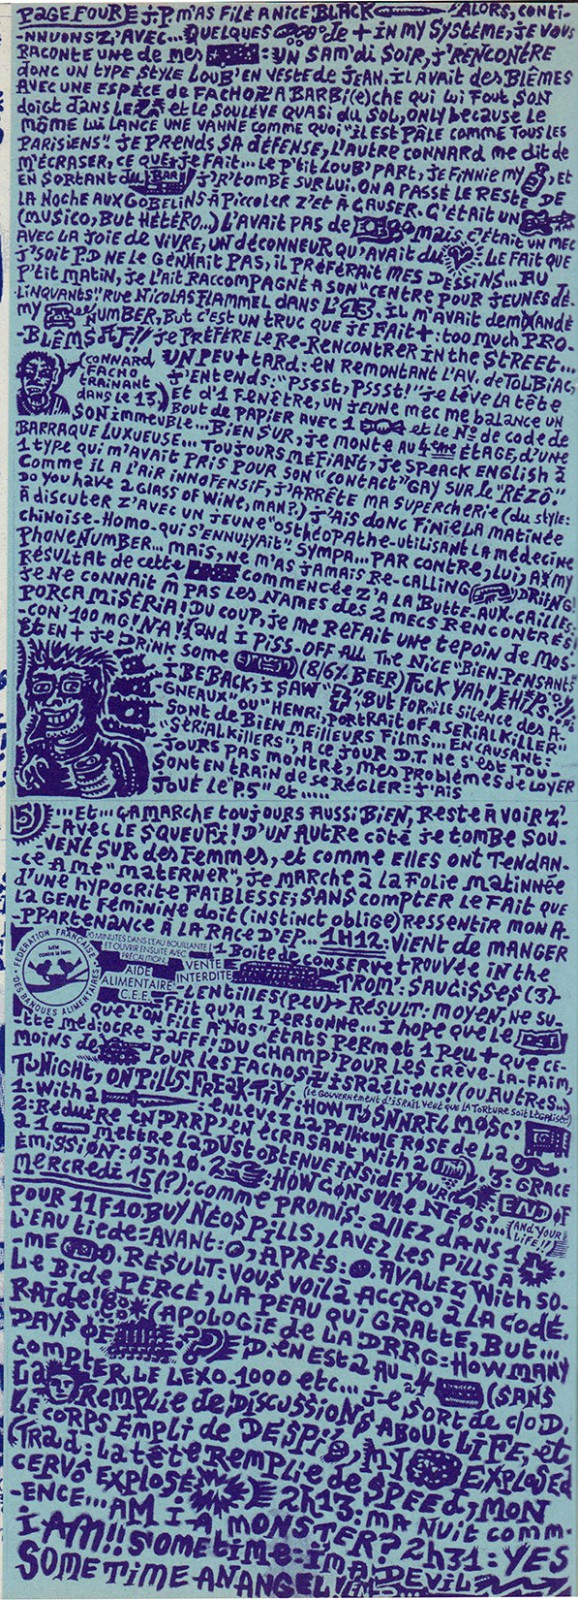 PAGE FOUR J.P M'AS FILÉ A NICE BLACK ALORS, CONTI-
-NUONS Z'AVEC... QUELQUES de + IN MY SYSTÈME, JE VOUS
RACONTE UNE de MES : UN SAM'di SOIR, J'RENCONTRE
donc UN TYPE STYLE LOUB' EN VESTE de JEAN. IL AVAIT des BLÊMES
AVEC UNE ESPÈCE de FACHO Z'A BARBI(e)CHE QUI LUI FOUT SON
doigt dans LE et LE SOULÈVE QUASI du SOL, ONLY because LE
MÔME LUI LANCE UNE VANNE COMME QUOI "IL EST PÂLE COMME TOUS LES
PARISIENS". JE PRENDS SA DÉFENSE, L'AUTRE CONNARD ME dit de
M'ÉCRASER, CE QUE JE FAIT... LE P'tit LOUB' PART, JE FINNIE MY , ET
EN SORTANT du BAR J'R'TOMBE SUR LUI. ON A PASSÉ LE RESTE DE
LA NOCHE AUX GOBELINS À PICOLER Z'ET À CAUSER. C'ÉTAIT UN
(MUSICO, BUT HÉTÉRO...) L'AVAIT PAS de MAIS C'ÉTAIT UN MEC
AVEC LA JOIE de VIVRE, UN DÉCONNEUR QU'AVAIT du . LE FAIT QUE
J'SOIT P.D NE LE GÊNAIT PAS, IL PRÉFÉRAIT MES DESSINS... AU
P'tit MATIN, JE L'AIT RACCOMPAGNÉ A SON "CENTRE POUR JEUNES DÉ-
-LINQUANTS" RUE NICOLAS FLAMMEL DANS L'13. IL M'AVAIT demANdÉ
MY NUMBER, BUT C'EST UN TRUC QUE JE FAIT + : too MUCH PRO-
-BLÈMS !! JE PRÉFÈRE LE RE-RENCONTRER IN the STREET...
(CONNARD FACHO TRAINANT dans le 13)
UN PEU + TARD : EN REMONTANT L'AV. de TOLBIAC,
J'ENTENDS : "PSSST, PSSST!" JE LÈVE LA TÊTE
et d'1 FENÊTRE, UN JEUNE MEC ME BALANCE UN
BOUT de PAPIER AVEC 1 et LE N° de CODE de
SON IMMEUBLE... BIEN SUR, JE MONTE AU 4ème ÉTAGE, d'UNE
BARRAQUE LUXUEUSE... TOUJOURS MÉFIANT, JE SPEACK ENGLISH à
1 TYPE QUI M'AVAIT PRIS POUR SON "CONTACT" GAY SUR LE "RÉZO".
COMME IL A L'AIR INNOFENSIF, J'ARRÊTE MA SUPERCHERIE (du STYLE:
DO YOU HAVE 2 GLASS OF WINE, MAN?) J'AIS DONC FINIE LA MATINÉE
À DISCUTER Z'AVEC UN JEUNE "OSTHÉOPATHE-UTILISANT LA MÉDECINE
CHINOISE-HOMO-QUI S'ENNUYAIT" SYMPA... PAR CONTRE, LUI, A MY
PHONE NUMBER... MAIS, NE M'AS JAMAIS RE-CALLING DRIING!
RÉSULTAT de CETTE COMMENCÉE Z'A LA BUTTE-AUX-CAILLES:
JE NE CONNAIT M PAS LES NAMES des 2 MECS RENCONTRÉS!
PORCA MISERIA! DU COUP, JE ME REFAIT UNE TEPOIN de MOS-
-CON' 100 MG! NA! (and I PISS-OFF ALL The NICE "BIEN-PENSANTS"
ET EN + JE DRINK SOME (8/6% BEER) FUCK YAH! EHITS...
I BE BACK, I SAW "7", BUT FOR MI LE SILENCE des A-
GNEAUX" OU "HENRI, PORTRAIT OF A SERIAL KILLER"
SONT de BIEN MEILLEURS FILMS... EN CAUSANT:
"SERIAL KILLERS", À CE JOUR D.T. NE S'EST TOU-
-JOURS PAS MONTRÉ, MES PROBLÈMES de LOYER
SONT EN TRAIN de SE RÉGLER : J'AIS
JOUÉ LE "PS" ET .....
5 ...ET... ÇA MARCHE TOUJOURS AUSSI BIEN, RESTE À VOIR Z'-
-AVEC LE SQUEUFI! D'UN AUTRE CÔTÉ JE TOMBE SOU-
-VENT SUR des FEMMES, et COMME ELLES ONT TENDAN-
-CE A ME "MATERNER", JE MARCHE À LA FOLIE MATINNÉE
d'UNE HYPOCRITE FAIBLESSE; SANS COMPTER LE FAIT QUE
LA GENT FÉMININE DOIT (INSTINCT OBLIGE) RESSENTIR MON A-
-PPARTENANCE À LA RACE D'EP. 1H12 : VIENT de MANGER
FÉDÉRATION FRANÇAISE DES BANQUES ALIMENTAIRES
lutte contre la faim
MINUTES DANS L'EAU BOUILLANTE
ET OUVRIR ENSUITE AVEC
PRÉCAUTION
AIDE ALIMENTAIRE C.E.E.
VENTE INTERDITE
1 BOITE de CONSERVE TROUVÉE IN the
TROM' : SAUCISSES (3)
LENTILLES (PEU) → RÉSULT : MOYEN, NE SU-
FFIT QU'A 1 PERSONNE... I HOPE QUE LE
QUE L'ON FILE A "NOS" ÉTATS PERMET 1 PEU + QUE CE-
TTE MÉDIOCRE JAFFE! DU CHAMP' POUR LES CRÈVE-LA-FAIM,
MOINS de POUR LES FACHOS ISRAÉLIENS! (OU AUTRES...)
(LE GOUVERNEMENT d'ISRAËL VEUT QUE LA TORTURE SOIT LÉGALISÉE)
TUNIGHT, ON PILLS FREAK TIV. : HOW TO SNNRFL MOSC?
1: With a ENLEVEZ LA PELLICULE ROSE de LA
2: RÉDUIRE EN DRPP EN ÉCRASANT WITH A 3: GRACE
à 1 METTRE LA DUST OBTENUE INSIDE YOUR END OF
ÉMISSION : 03H10. 2 : HOW CONSUME NÉOS... (AND YOUR LIFE!!)
MERCREDI 15(?) : COMME PROMIS : ALLEZ DANS 1
POUR 11F10. BUY NÉOS PILLS, LAVEZ LES PILLS À
L'EAU tiède = AVANT: , APRÈS: . AVALEZ WITH SO-
-ME . RESULT : VOUS VOILÀ ACCRO' À LA CODÉ.
LE BIDE PERCÉ, LA PEAU QUI GRATTE, BUT...
RAIDE! (APOLOGIE de LA DRRG : HOW MANY
DAYS OF ? D. EN EST 2 AU - 4 (SANS
COMPTER LE LEXO. 1000 etc... JE SORT de CLOD,
LA REMPLIE de DISCUSSIONS ABOUT LIFE, et
LE CORPS EMPLI DE DESPI , MY EXPLOSED
(TRAD : LA TÊTE REMPLIE de SPEED, MON
CERVÔ EXPLOSÉ ) 2H13 : MA NUIT COMM-
-ENCE... AM I A MONSTER? 2H31 : YES
I AM!! SOMETIME I'M A DEVIL
SOMETIME AN ANGEL!